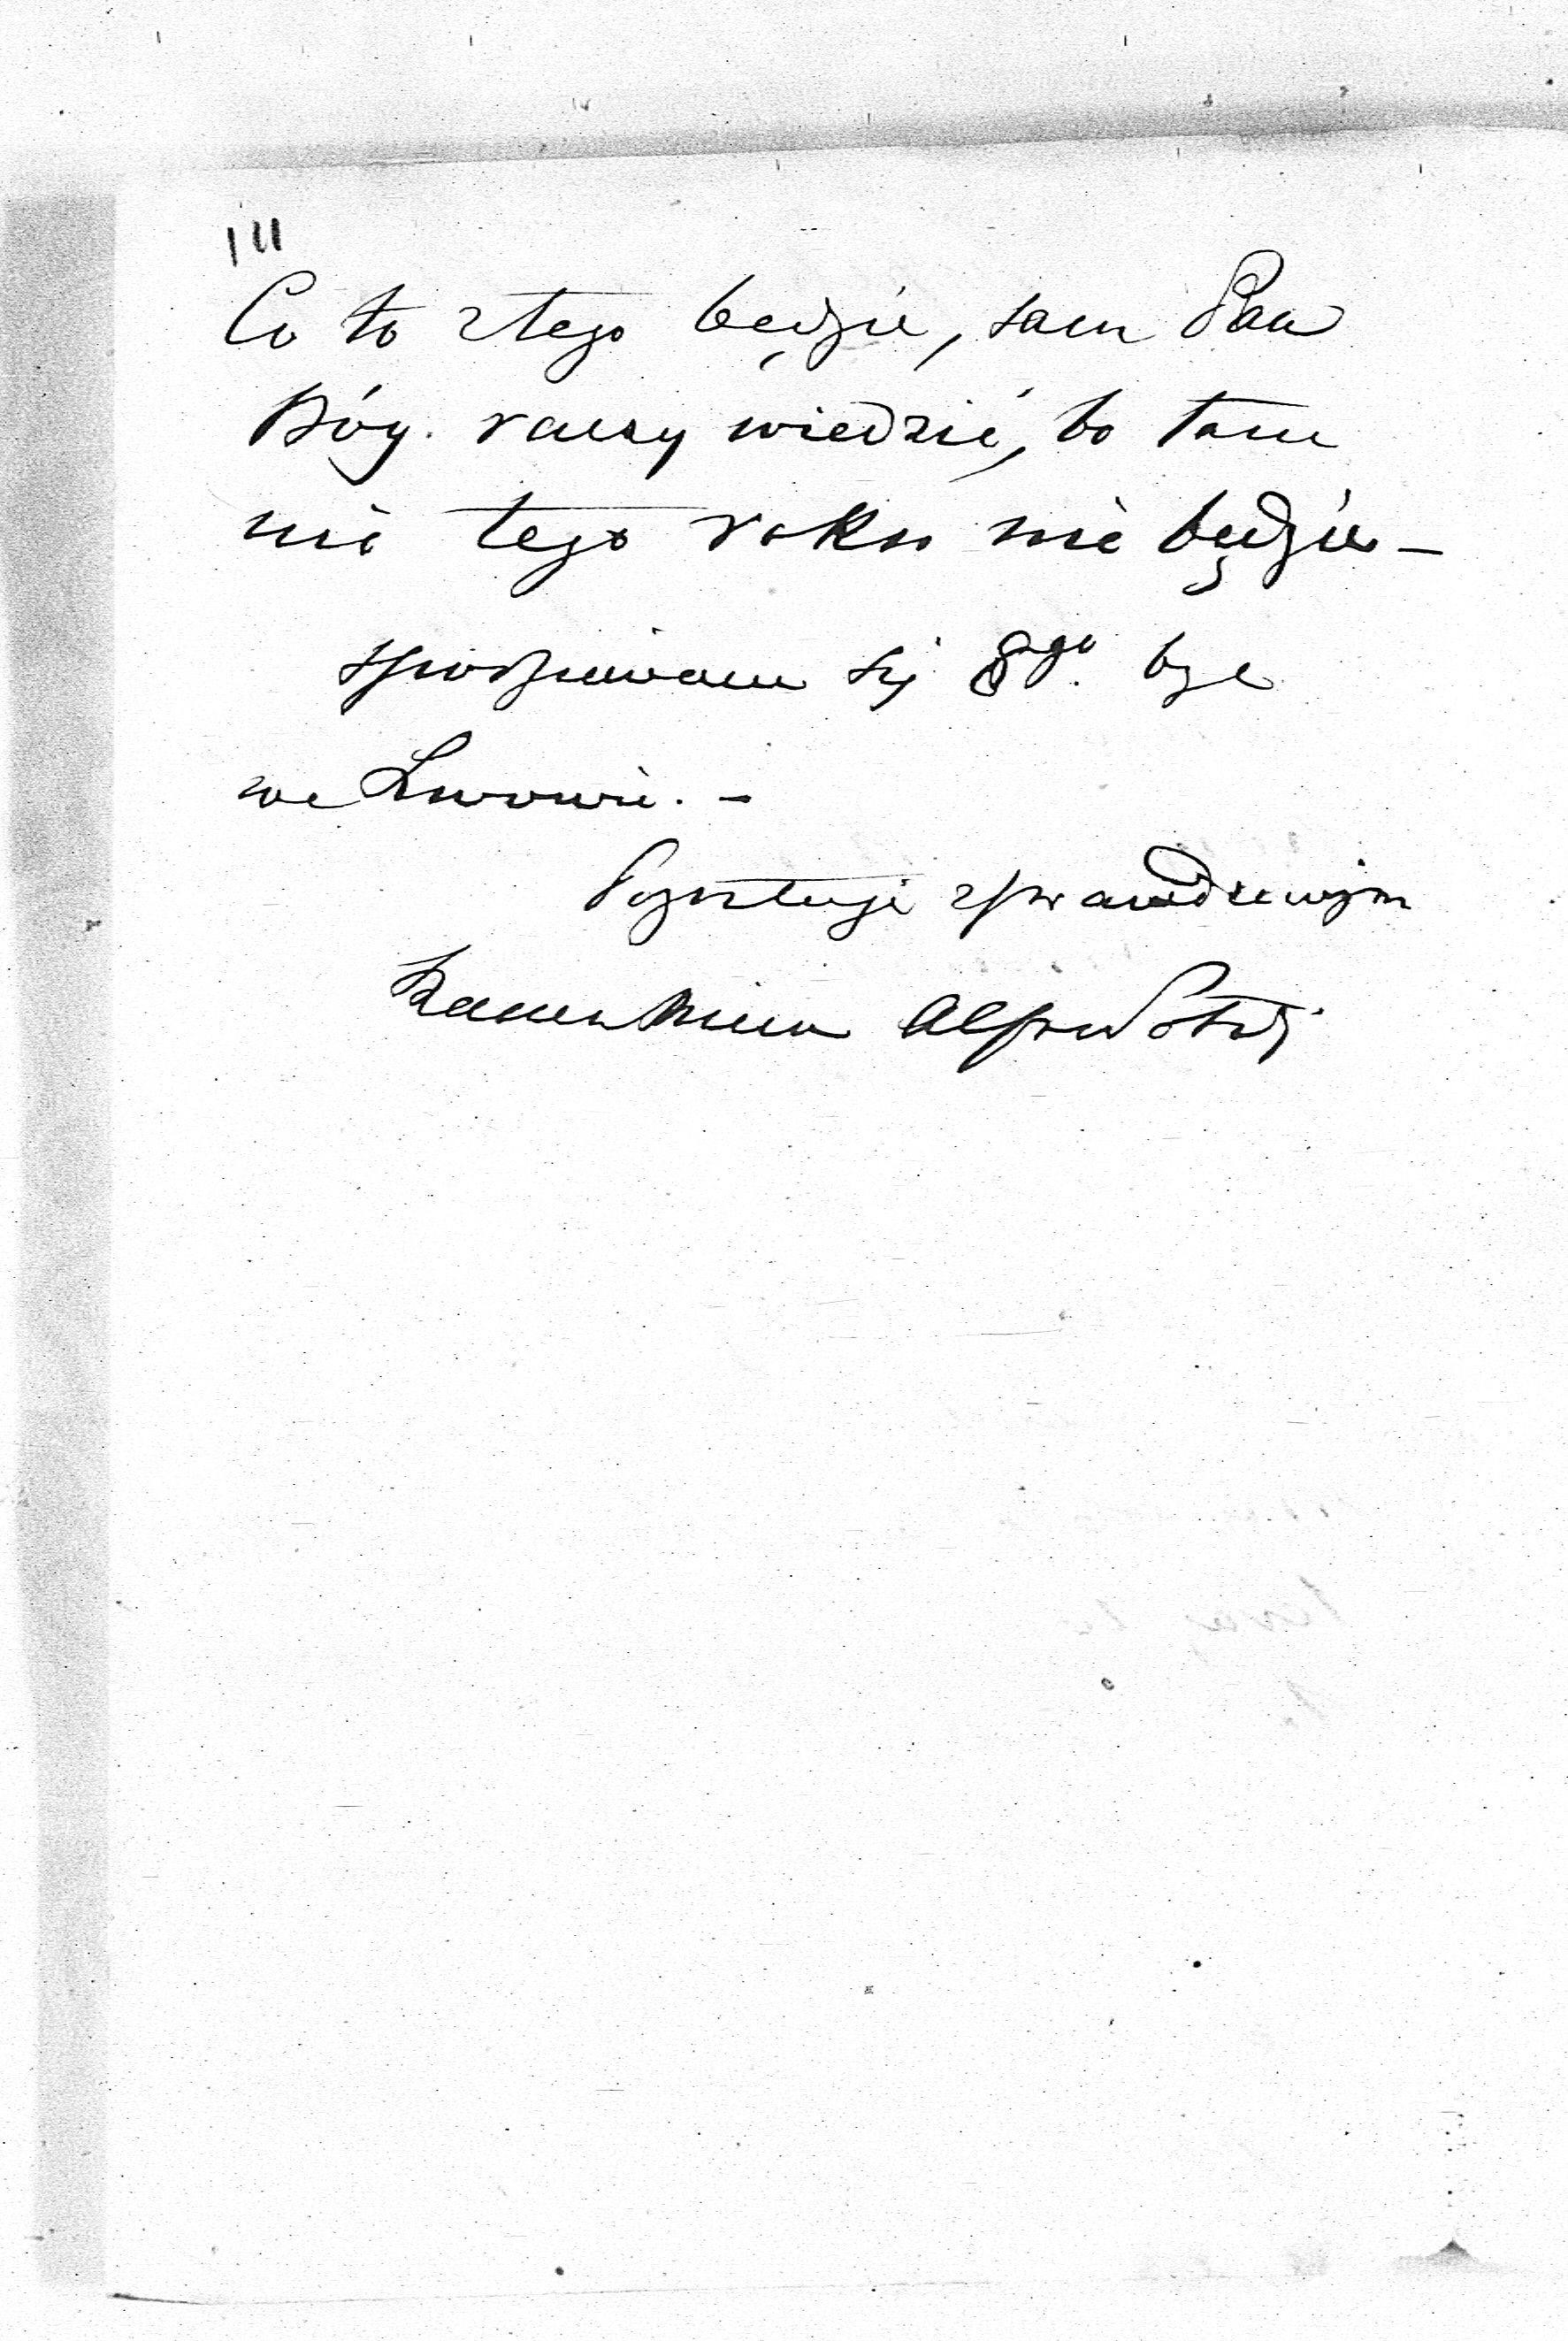 111
Co to ztego będzie, sam Pan
Bóg raczy wiedzić, bo tam
nic tego roku nie będzie –
spodziewam się 8go być
we Lwowie. –
Pozostaję zprawdziwym
szacunkiem Alfred Potocki